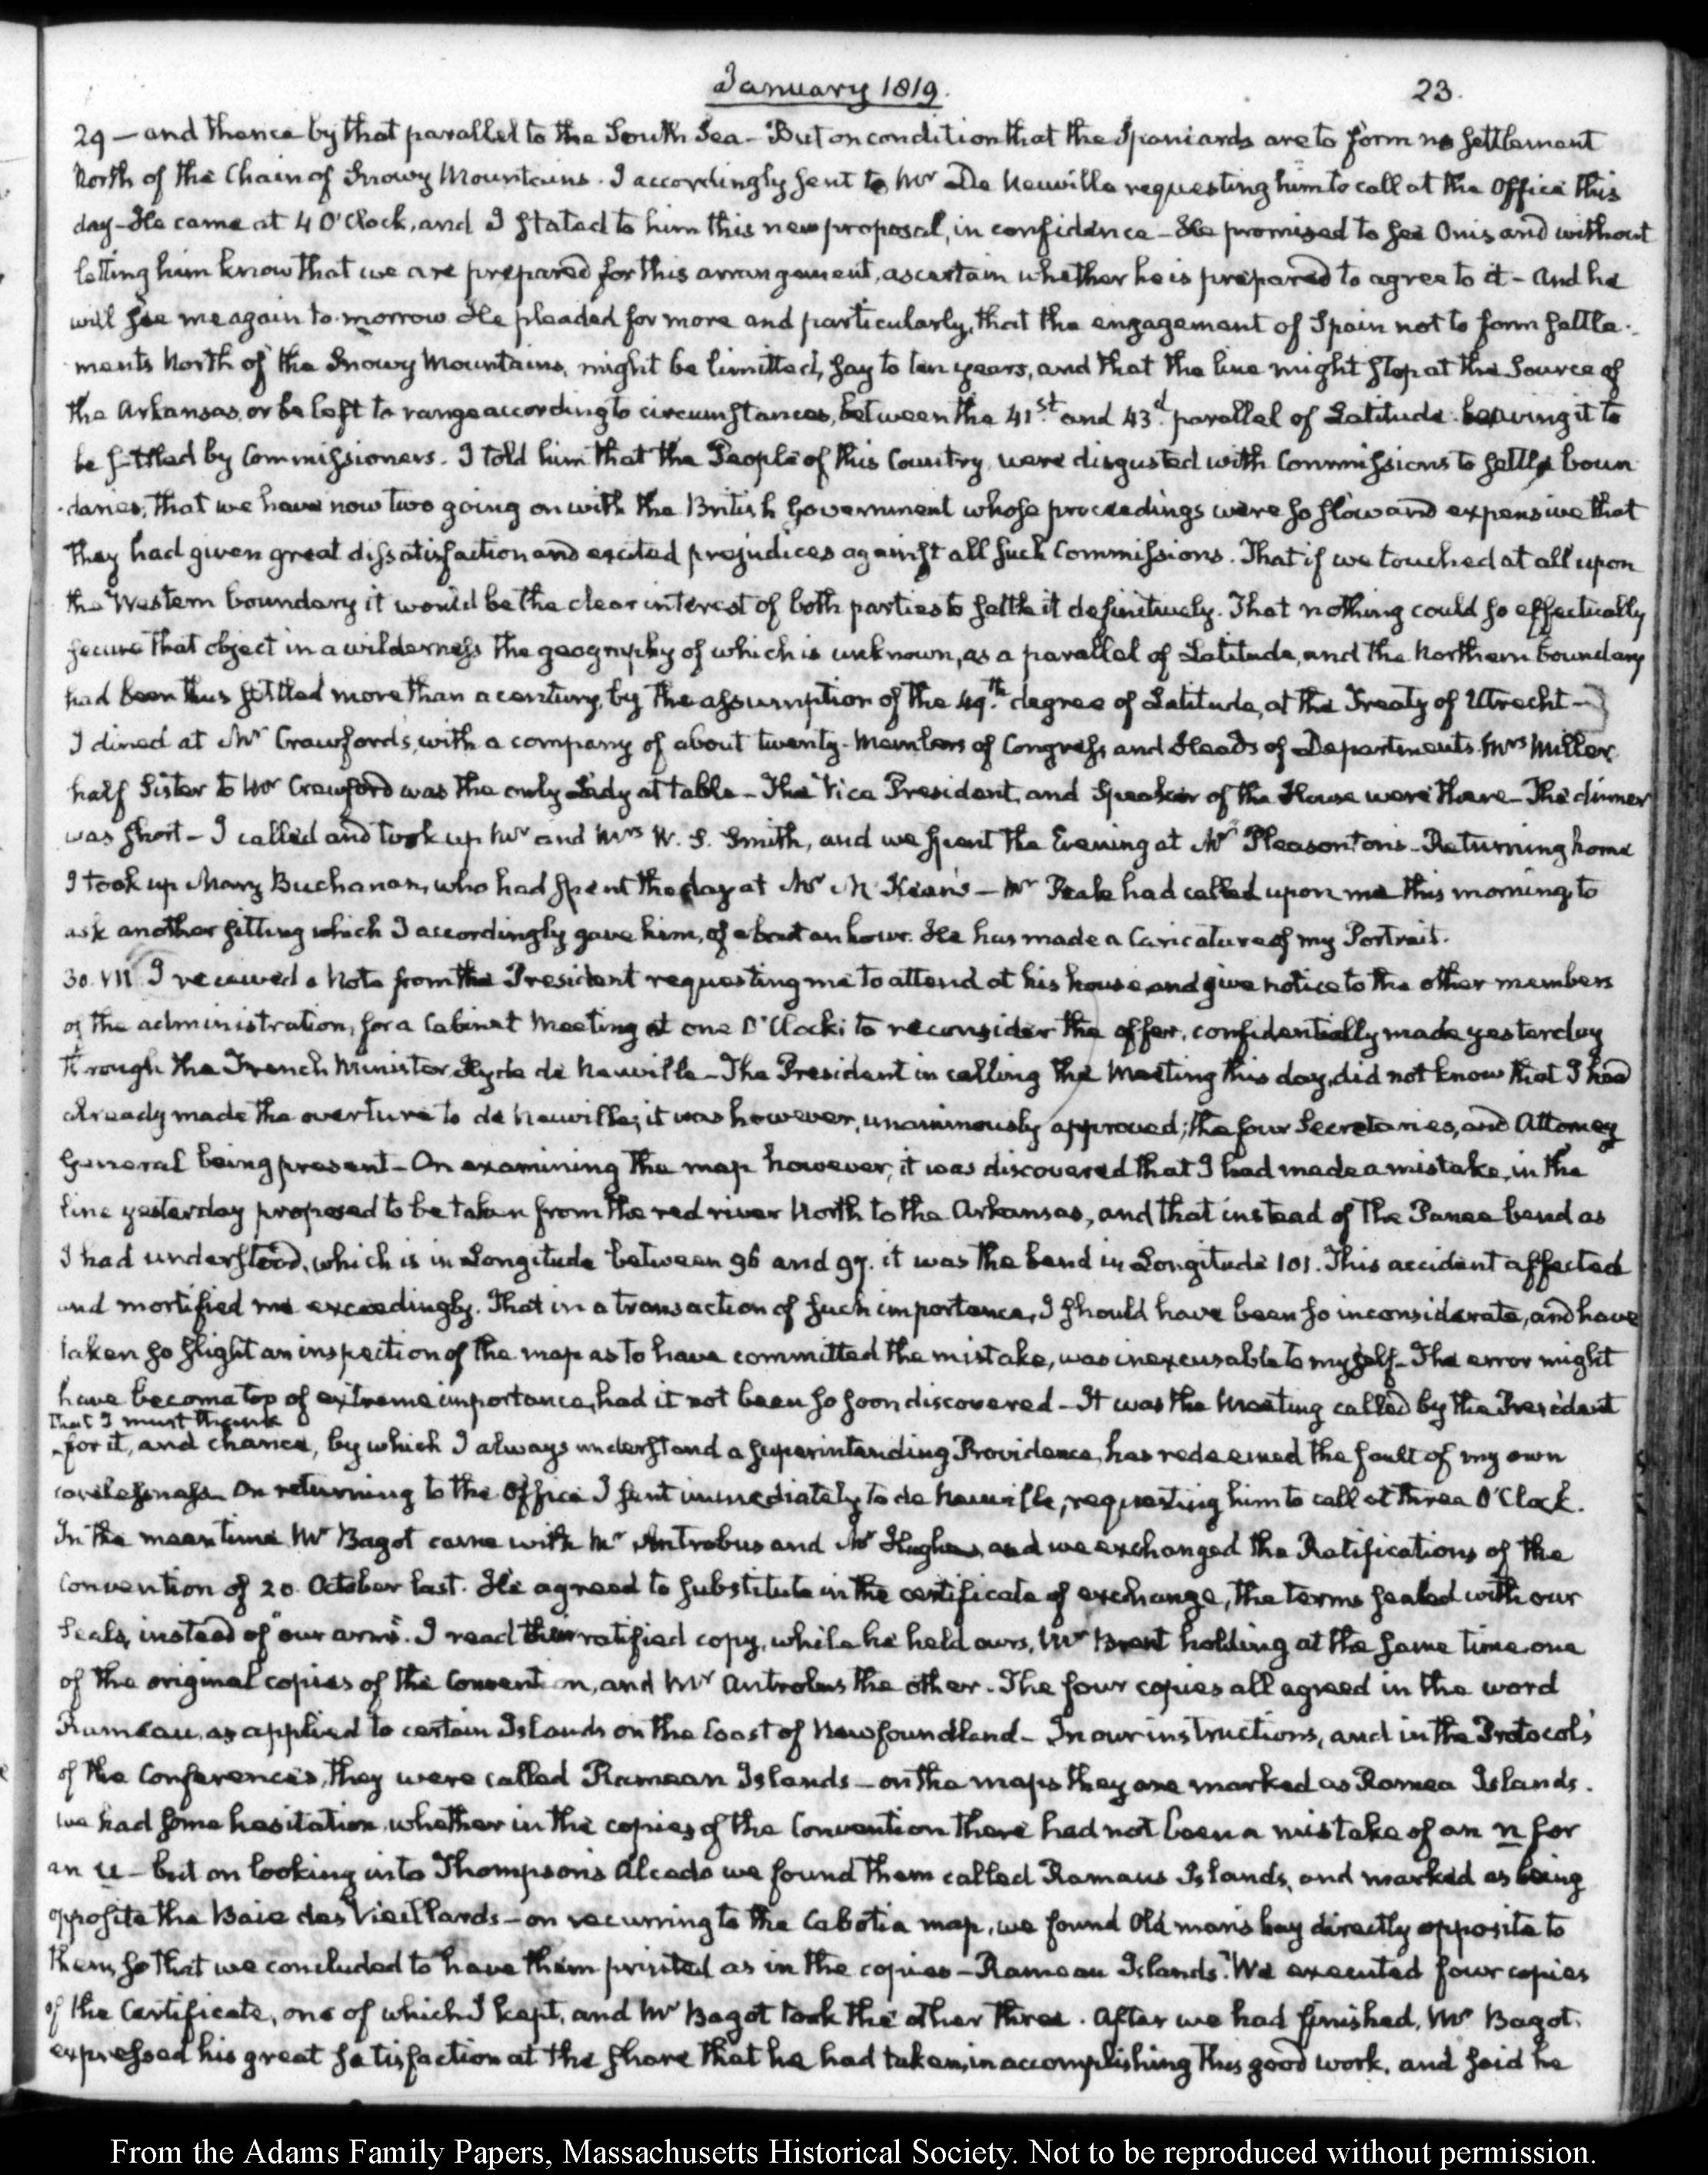 January 1819.
23.
29 — and thence by that parallel to the South Sea - But on condition that the Spaniards are to form no settlement
North of the Chain of Snowy Mountains. I accordingly sent to Mr De Neuville requesting him to call at the Office this
day - He came at 4 O'Clock, and I stated to him this new proposal, in confidence - He promised to see Onis and without
letting him know that we are prepared for this arrangement, ascertain whether he is prepared to agree to it - And he
will see me again to-morrow He pleaded for more and particularly, that the engagement of Spain not to form settle-
ments North of the Snowy Mountains, might be limitted, say to ten years, and that the line might stop at the Source of
the Arkansas, or be left to range according to circumstances, between the 41st. and 43d. parallel of Latitude leaving it to
be settled by Commissioners. I told him that the People of this Country, were disgusted with Commissions to settle boun
-daries, that we have now two going on with the British Government whose proceedings were so slow and expensive that
they had given great dissatisfaction and excited prejudices against all such Commissions. That if we touched at all upon
the Western boundary it would be the clear interest of both parties to settle it definitively. That nothing could so effectually
secure that object in a wilderness the geography of which is unknown, as a parallel of Latitude, and the Northern boundary
had been thus settled more than a century, by the assumption of the 49.th degree of Latitude, at the Treaty of Utrecht -
I dined at Mr Crawford's, with a company of about twenty - Members of Congress and Heads of Departments. Mrs Miller
half Sister to Mr Crawford was the only Lady at table - The Vice President, and Speaker of the House were there - The dinner
was short - I called and took up Mr and Mrs W. S. Smith, and we spent the Evening at Mr Pleasonton's - Returning home
I took up Mary Buchanan, who had spent the day at Mr M Kean's — Mr Peale had called upon me this morning, to
ask another sitting which I accordingly gave him, of about an hour. He has made a Caricature of my Portrait.
30. VII. I received a Note from the President requesting me to attend at his house, and give notice to the other members
of the administration, for a Cabinet Meeting at one O'Clock; to reconsider the offer, confidentially made yesterday
through the French Minister Hyde de Neuville - The President in calling the Meeting this day, did not know that I had
already made the overture to de Neuville; it was however, unanimously approved; the four Secretaries, and Attorney
General being present - On examining the map however, it was discovered that I had made a mistake, in the
line yesterday proposed to be taken from the red river North to the Arkansas, and that instead of the Panee bend as
I had understood, which is in Longitude between 96 and 97. it was the bend in Longitude 101. This accident affected
and mortified me exceedingly. That in a transaction of such importance, I should have been so inconsiderate, and have
taken so slight an inspection of the map as to have committed the mistake, was inexcusable to myself - The error might
have become too of extreme importance, had it not been so soon discovered - It was the Meeting called by the President
that I must thank
for it, and chance, by which I always understand a superintending Providence, has redeemed the fault of my own
carelessness. On returning to the Office I sent immediately to de Neuville, requesting him to call at three O'Clock.
In the mean time Mr Bagot came with Mr Antrobus and Mr Hughes, and we exchanged the Ratifications of the
Convention of 20. October last. He agreed to substitute in the certificate of exchange, the terms sealed with our
Seals, instead of "our arms". I read their ratified copy, while he held ours, Mr Brent holding at the same time one
of the original copies of the Convention, and Mr Antrobus the other. The four copies all agreed in the word
Rameau, as applied to certain Islands on the Coast of Newfoundland - In our instructions, and in the Protocols
of the Conferences, they were called Ramean Islands - on the maps they are marked as Ramea Islands.
we had some hesitation, whether in the copies of the Convention there had not been a mistake of an n for
an u - but on looking into Thompson's Alcedo we found them called Ramaus Islands, and marked as being
opposite the Baie des Vieillards - on recurring to the Cabotia map, we found Old man's bay directly opposite to
them, so that we concluded to have them printed as in the copies - Rameau Islands. We executed four copies
of the Certificate, one of which I kept, and Mr Bagot took the other three. After we had finished, Mr Bagot.
expressed his great satisfaction at the share that he had taken, in accomplishing this good work, and said he
From the Adams Family Papers, Massachusetts Historical Society. Not to be reproduced without permission.